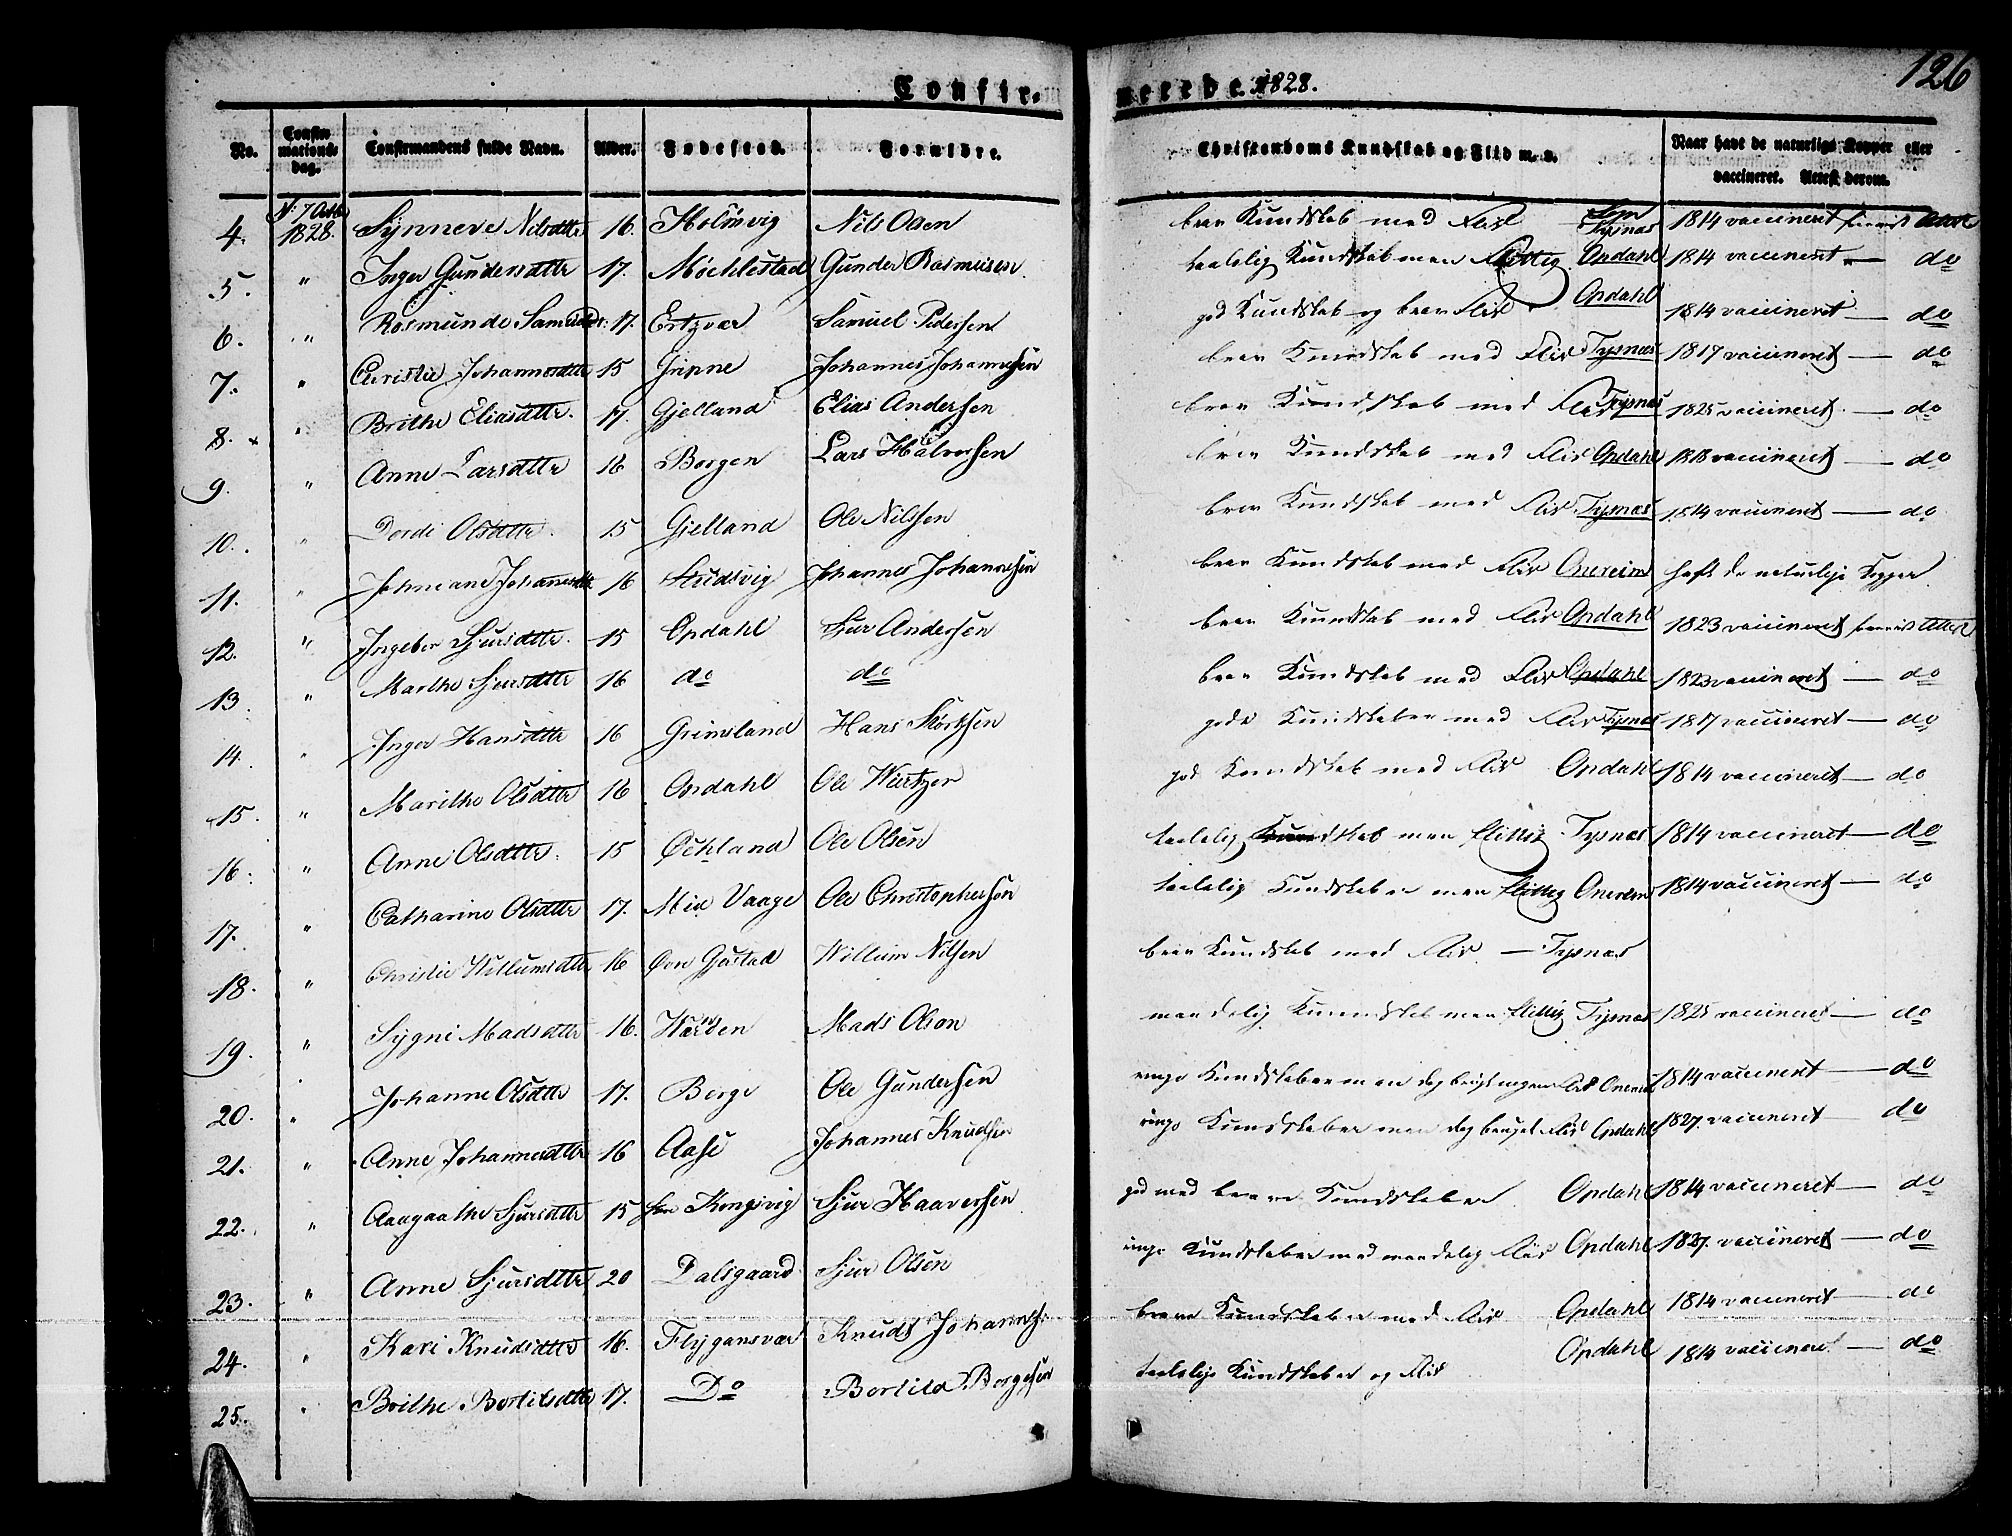 126
Confirmerede. 1828.
No. Confirmationsdag. Confirmandens fulde Navn. Alder. Fødested. Forældre. Christendoms Kundskab og Flid m. v. Naar havt de naturlige Kopper eller vaccineret. Attest derom.
4. 7 Octb 1828. Synneve Nilsdttr 16. Holmvig Nils Olsen brav Kundskab med Flid Tysnæs 1814 vaccineret Attest
5. " Inger Gundersdttr 17. Møchlestad Gunder Rasmusen taalelig Kundskab men flittig Opdahl 1814 vaccineret — do
6. " Rosmunde Samuelsdtr: 17. Ertzvær Samuel Pedersen god Kundskab og brav Flid Opdahl 1814 vaccineret — do
7. " Christie Johannesdttr 15 Gripne Johannes Johannesen brav Kundskab med Flid Tysnæs 1817 vaccineret — do
8. " Brithe Eliasdttr. 17. Gjelland Elias Andersen brav Kundskab med Flid Tysnæs 1825 vaccineret — do
9. " Anne Larsdttr 16 Borgen Lars Halvorsen brav Kundskab med Flid Opdahl 1818 vaccineret — do
10. " Dordi Olsdttr. 15 Gjelland Ole Nilssen brav Kundskab med Flid Tysnæs 1814 vaccineret — do
11. " Johanne Johannesdttr 16 Johannes Johannesen brav Kundskab med Flid Onereim haft de naturlige Kopper
12. " Ingebor Sjursdttr. 15 Opdahl Sjur Andersen brav Kundskab med Flid Opdahl 1823 vaccineret Attest
13. " Marthe Sjursdttr 16 do do brav Kundskab med Flid Opdahl 1823 vaccineret — do
14. " Inger Hansdttr 16 Grimsland Hans Størksen gode Kundskaber med Flid Tysnæs 1817 vaccineret — do
15. " Marithe Olsdttr 16 Opdahl Ole Wiertzer god Kundskab med Flid Opdahl 1814 vaccineret — do
16. " Anne Olsdttr. 15 Øchland Ole Olsen taalelig Kundskab men flittig Tysnæs 1814 vaccineret — do
17. " Catharine Olsdttr 17. Mid Vaage Ole Christophersen taalelig Kundskaber men flittig Onereim 1814 vaccineret — do
18. " Christie Willumsdttr 16 Øvre Gjøstad Willum Nilsen brav Kundskab med Flid — Tysnæs
19. " Sygni Madsdttr 16. Mads Olson maadelig Kundskab men flittig Tysnæs 1825 vaccineret — do
20. " Johanne Olsdttr 17. Berge Ole Gundersen ringe Kundskaber men Flid Onereim 1814 vaccineret — do
21. " Anne Johannesdttr 16 Aase Johannes Knudsen ringe Kundskaber men dog Flid Opdahl 1827. vaccineret — do
22. " Aaagaathe Sjursdttr 15 Kongsvig Sjur Haaversen god med brave Kundskaber Opdahl 1814 vaccineret — do
23. " Anne Sjursdttr 20 Dalsgaard Sjur Olsen ringe Kundskaber med maadelig Flid Opdahl 1827. vaccineret — do
24. " Kari Knudsdttr 16. Flygansvær Knud Johannes: brave Kundskaber med Flid Opdahl 1814 vaccineret — do
25. " Brithe Bortilsdttr 17. Do Bortild Borgesen taalelige Kundskaber og Flid Opdahl 1814 vaccineret — do